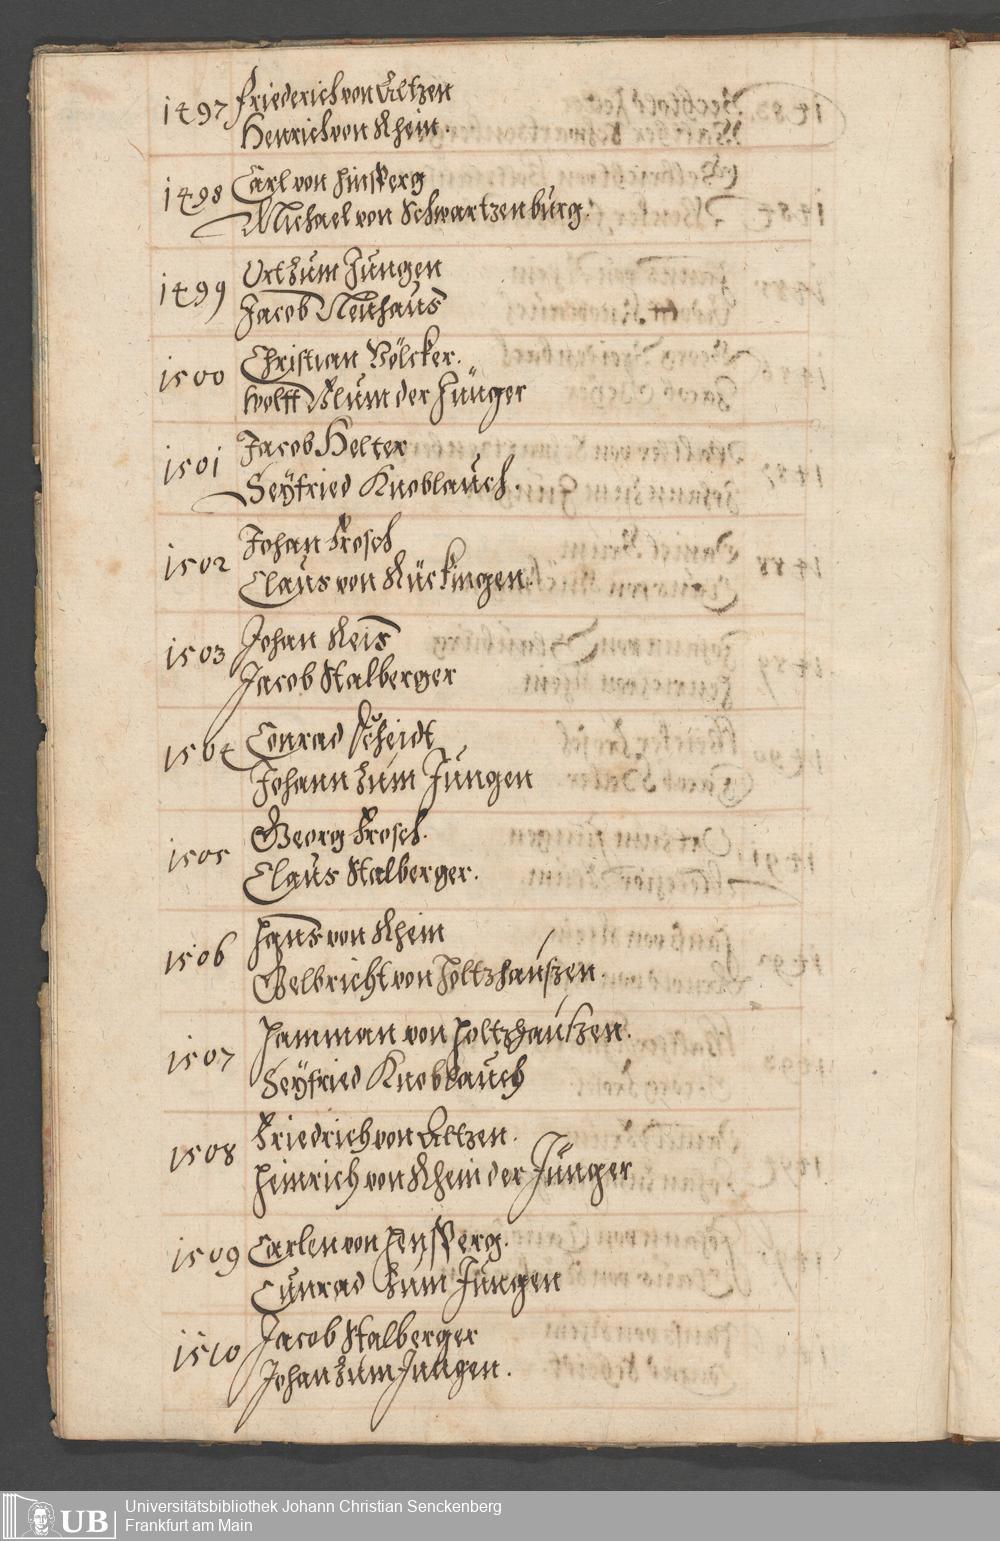 1497 Friederich von Altzen
Henrich von Rhein.
1498 Carl von Hinsperg
Michael von Schwartzenburg.
1499 Ort zum Jungen
Jacob Neuhaus
1500 Christian Völcker.
Wolff Blum der Jünger
1501 Jacob Heller
Seyfried Knoblauch.
1502 Johan Frosch
Claus von Rückingen.
1503 Johan Reis
Jacob Stalberger
1504 Conrad Scheidt
Johann zum Jungen
1505 Georg Frosch.
Claus Stalberger.
1506 Hans von Rhein
Gelbricht von Holtzhaußen.
1507 Hamman von Holtzhaußen.
Seyfried Knoblauch
1508 Friedrich von Altzen.
Heinrich von Rhein der Jünger
1509 Carlen von Hynsperg.
Cunrad zum Jungen
1510 Jacob Stalberger
Johan zum Jungen.
UB
Universitätsbibliothek Johann Christian Senckenberg
Frankfurt am Main